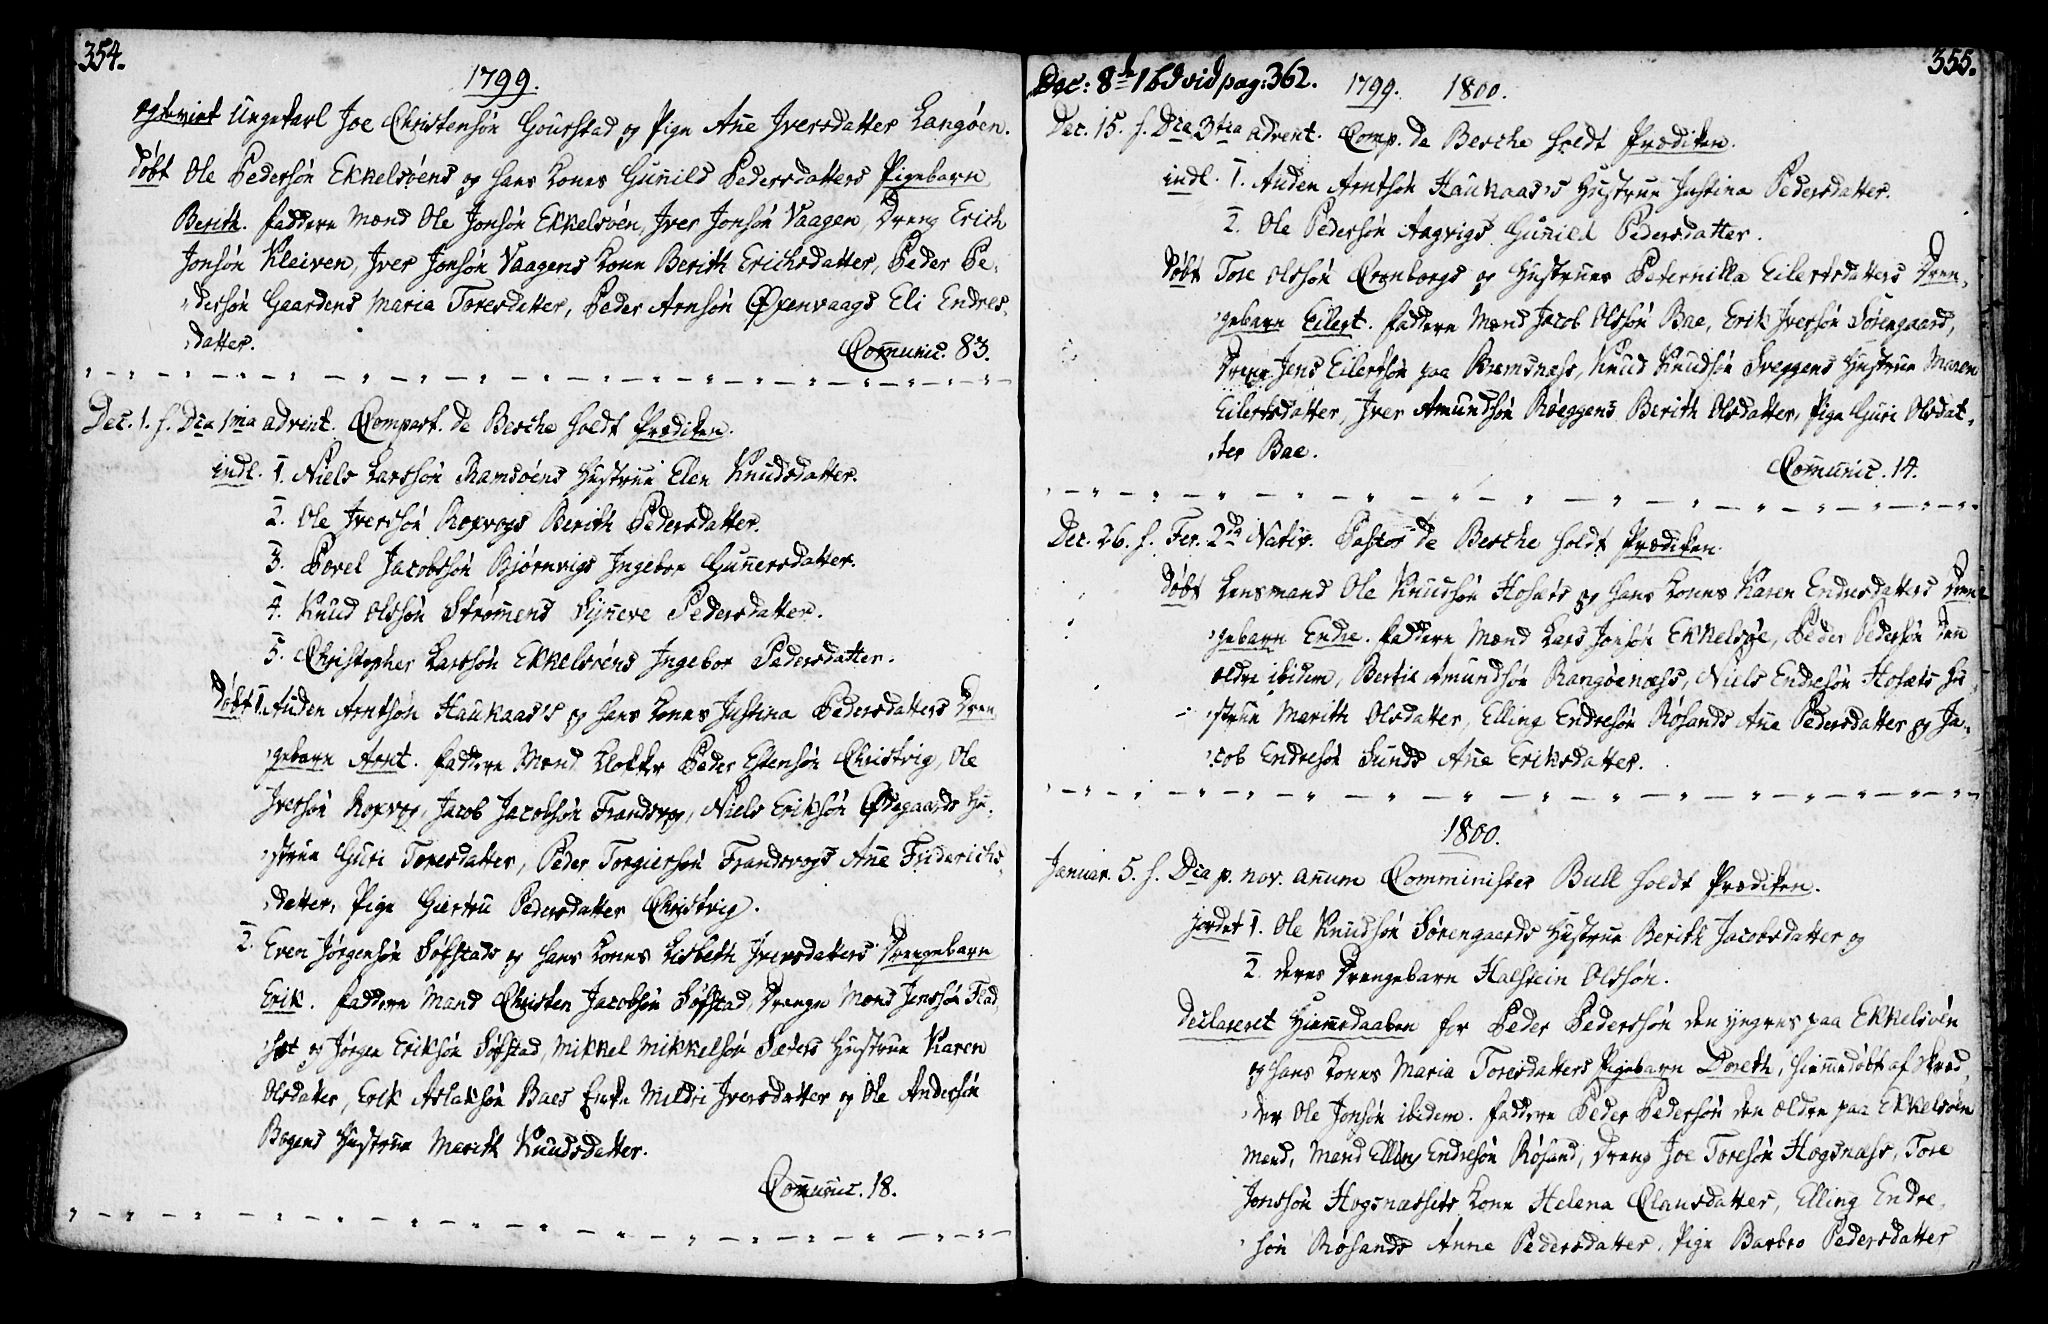 354.
1799.
egtviet Ungekarl Joe Christensøn Gourstad og Pige Ane Iversdatter Langøen.
Døbt Ole Pedersøn Ekkelsøens og hans Kones Gunild Pedersdatters Pigebarn
Berith. Faddere Mænd Ole Jonsøn Ekkelsøen, Iver Jonsøn Vaagen, Dreng Erich
Jonsøn Kleiven, Iver Jonsøn Vaagens Kone Berith Erichsdatter, Peder Pe,
,dersøn Gaardens Maria Toresdatter, Peder Arnsøn Øxenvaags Eli Endres,
,datter.
Communic. 83.
Dec. 1. f. Dca 1ma advent. Compast. de Besche holdt Prædiken.
indl. 1. Niels Larssøn Ramsøens Hustrue Elen Knudsdatter.
2. Ole Iversøn Roxvogs Berith Pedersdatter.
3. Povel Jacobsøn Bjørnvigs Ingebor Gunersdatter.
4. Knud Olssøn Strømens Syneve Pedersdatter.
5. Christopher Larssøn Ekkelsøens Ingebor Pedersdatter.
Døbt 1. Auden Arntsøn Haukaas's og hans Kones Justina Pedersdatters Dren,
,gebarn Arnt. Faddere Mænd Klokker Peder Estensøn Christvig, Ole
Iversøn Roxvog, Jacob Jacobsøn Frandsvog, Niels Eriksøn Ødegaards Hu,
,strue Guri Toresdatter, Peder Torgiersøn Frandsvogs Ane Friderichs,
,datter, Pige Giertru Pedersdatter Christvig.
2. Even Jørgensøn Søfstads og hans Kones Lisbeth Iversdatters Drengebarn
Erik. Faddere Mænd Christen Jacobsøn Søfstad, Drenge Mons Jenssøn Flad,
,sæt og Jørgen Eriksøn Søfstad, Mikkel Mikkelsøn Sæters Hustrue Karen
Olsdatter, Erik Aslaksøn Baes Enke Mildri Iversdatter og Ole Andersøn
Bogens Hustrue Marith Knudsdatter.
Communic. 18.
355.
Dec: 8d 16 d vid pag: 362. 1799. 1800.
Dec. 15. f. Dca 3tia advent. Comp. de Besche holdt Prædiken.
indl. 1. Auden Arntsøn Haukaas's Hustrue Justina Pedersdatter.
2. Ole Pedersøn Aagvigs Gunild Pedersdatter.
Døbt Tore Olssøn Qrenborgs og Hustrues Peternilla Eilertsdatters Dren,
,gebarn Eilert. Faddere Mænd Jacob Olssøn Bae, Erik Iversøn Sørengaard,
Dreng Jens Eilertsøn paa Bremsnæss, Knud Knudsøn Sveggens Hustrue Maren
Eilertsdatter, Iver Amundsøn Røeggens Berith Olsdatter, Pige Guri Olsdat,
,ter Bae.
Communic. 14.
Dec. 26. f. Fer. 2da Nativ. Pastor de Besche holdt Prædiken.
Døbt Lensmand Ole Knudsøn Hosæts og hans Kones Karen Endresdatters Dren,
,gebarn Endre. Faddere Mænd Lars Jonsøn Ekkelsøe, Peder Pedersøn den
ældre ibidem, Bertil Amundsøn Rangøenæss, Niels Endresøn Hosæts Hu,
,strue Marith Olsdatter, Elling Endresøn Røsands Ane Pedersdatter og Ja,
,cob Endresøn Sunds Ane Eriksdatter.
1800.
Januar. 5. f. Dca p. nov. annum Comminister Bull holdt Prædiken.
jordet 1. Ole Knudsøn Sørengaards Hustrue Berith Jacobsdatter og
2. deres Drengebarn Halstein Olssøn.
Declareret Hiemedaaben for Peder Pederssøn den yngres paa Ekkelsøen
og hans Kones Maria Toresdatters Pigebarn Doreth, hiemedøbt af
der Ole Jonsøn ibidem. Faddere Peder Pedersøn den ældre paa Ekkelsøen
Mand, Mand Elling Endresøn Røsand, Dreng Joe Toresøn Hogsnæss, Tore
Jonssøn Hogsnæssets Kone Helena Clausdatter, Elling Endre,
,søn Røsands Anne Pedersdatter, Pige Barbro Pedersdatter